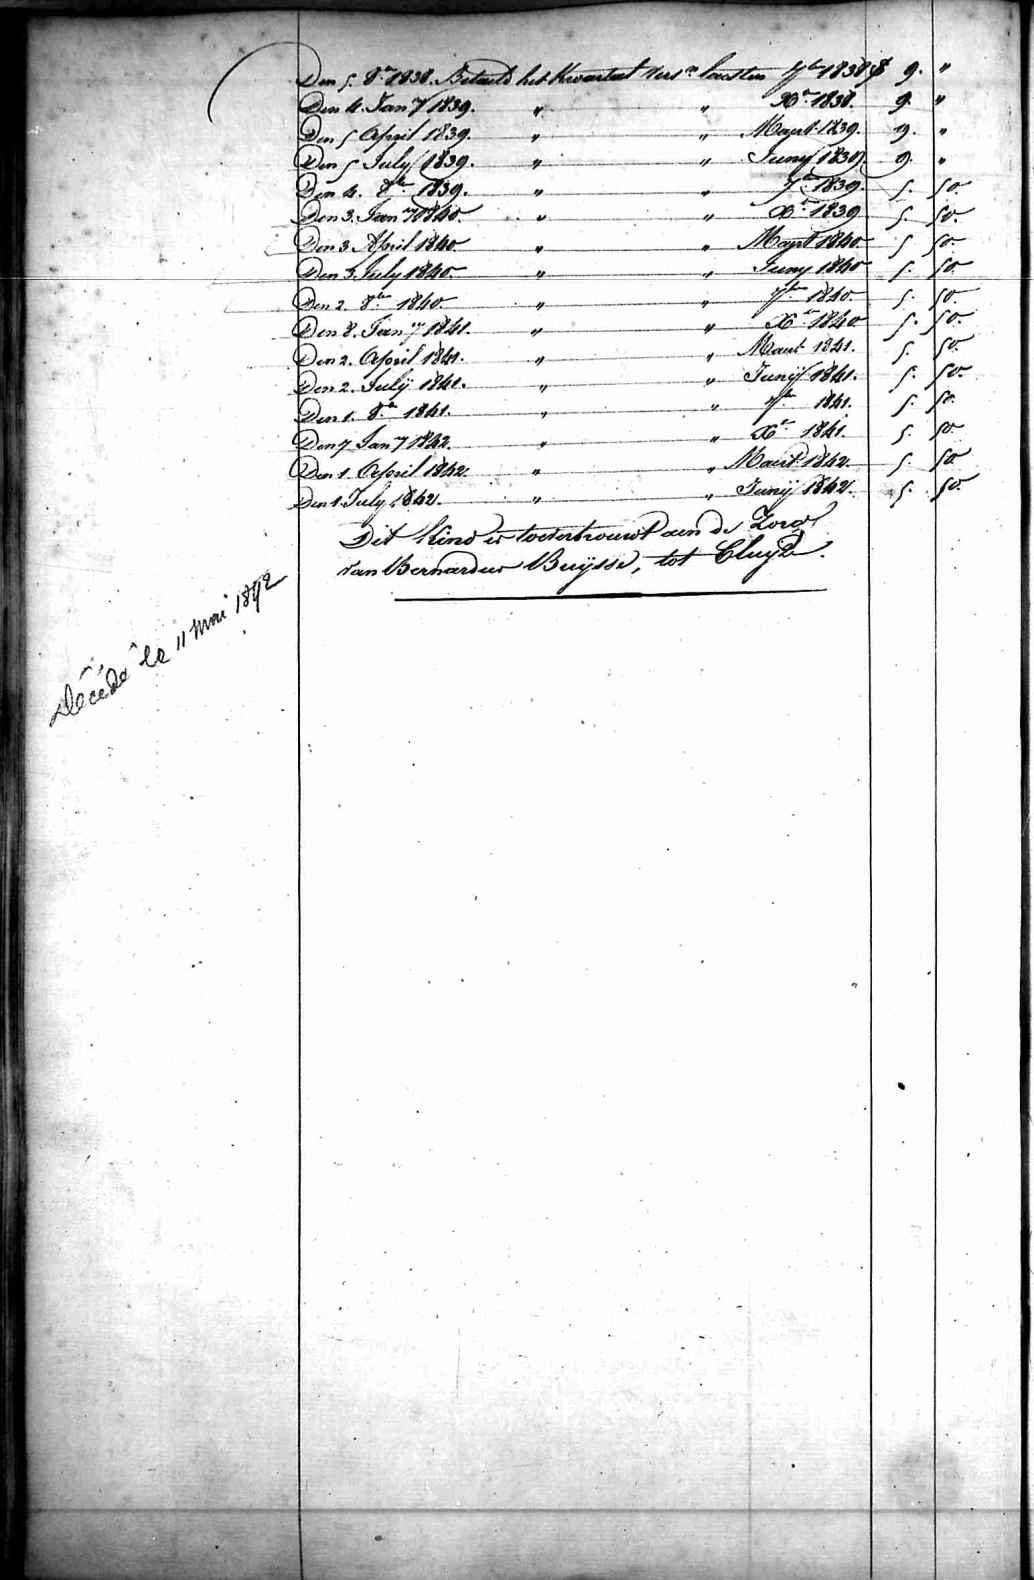 Den 5. 8er 1838. Betaeld het Kwartaal versn laesten 7ber 1838 f 9. "
Den 4. Jany 1839. " " Xr 1838. 9. "
Den 5 April 1839. " " Maert 1839. 9. "
Den 5 July 1839. " " Juny 1839 9. "
Den 4. 8er 1839. " " 7er 1839 5. 50.
Den 3. Jany 1840. " " Xr 1839 5. 50.
Den 3 April 1840 " " Maert 1840 5 50
Den 3 July 1840. " " Juny 1840 5. 50.
Den 2. 8ber 1840. " " 7ber 1840. 5. 50.
Den 8. Jany 1841. " " Xer 1840 5. 50.
Den 2. April 1841. " " Maert 1841. 5. 50.
Den 2. Julÿ 1841. " " Junÿ 1841. 5. 50.
Den 1. 8er 1841. " " 7er 1841. 5. 50.
Den 7 Jany 1842. " " Xr 1841. 5. 50
Den 1 April 1842. " " Maert 1842. 5. 50
Den 1 July 1842. " " Junÿ 1842. 5. 50.
Dit Kind is toevertrouwt aen de Zorg
van Bernardus Buÿsse, tot Cluyze.
Décédé le 11 mai 1892